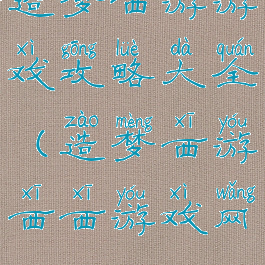 造梦西游游
xì gōng lüè dà quán
戏攻略大全
zào mèng xī yóu
（造梦西游
xī xī yóu xì wǎng
西西游戏网